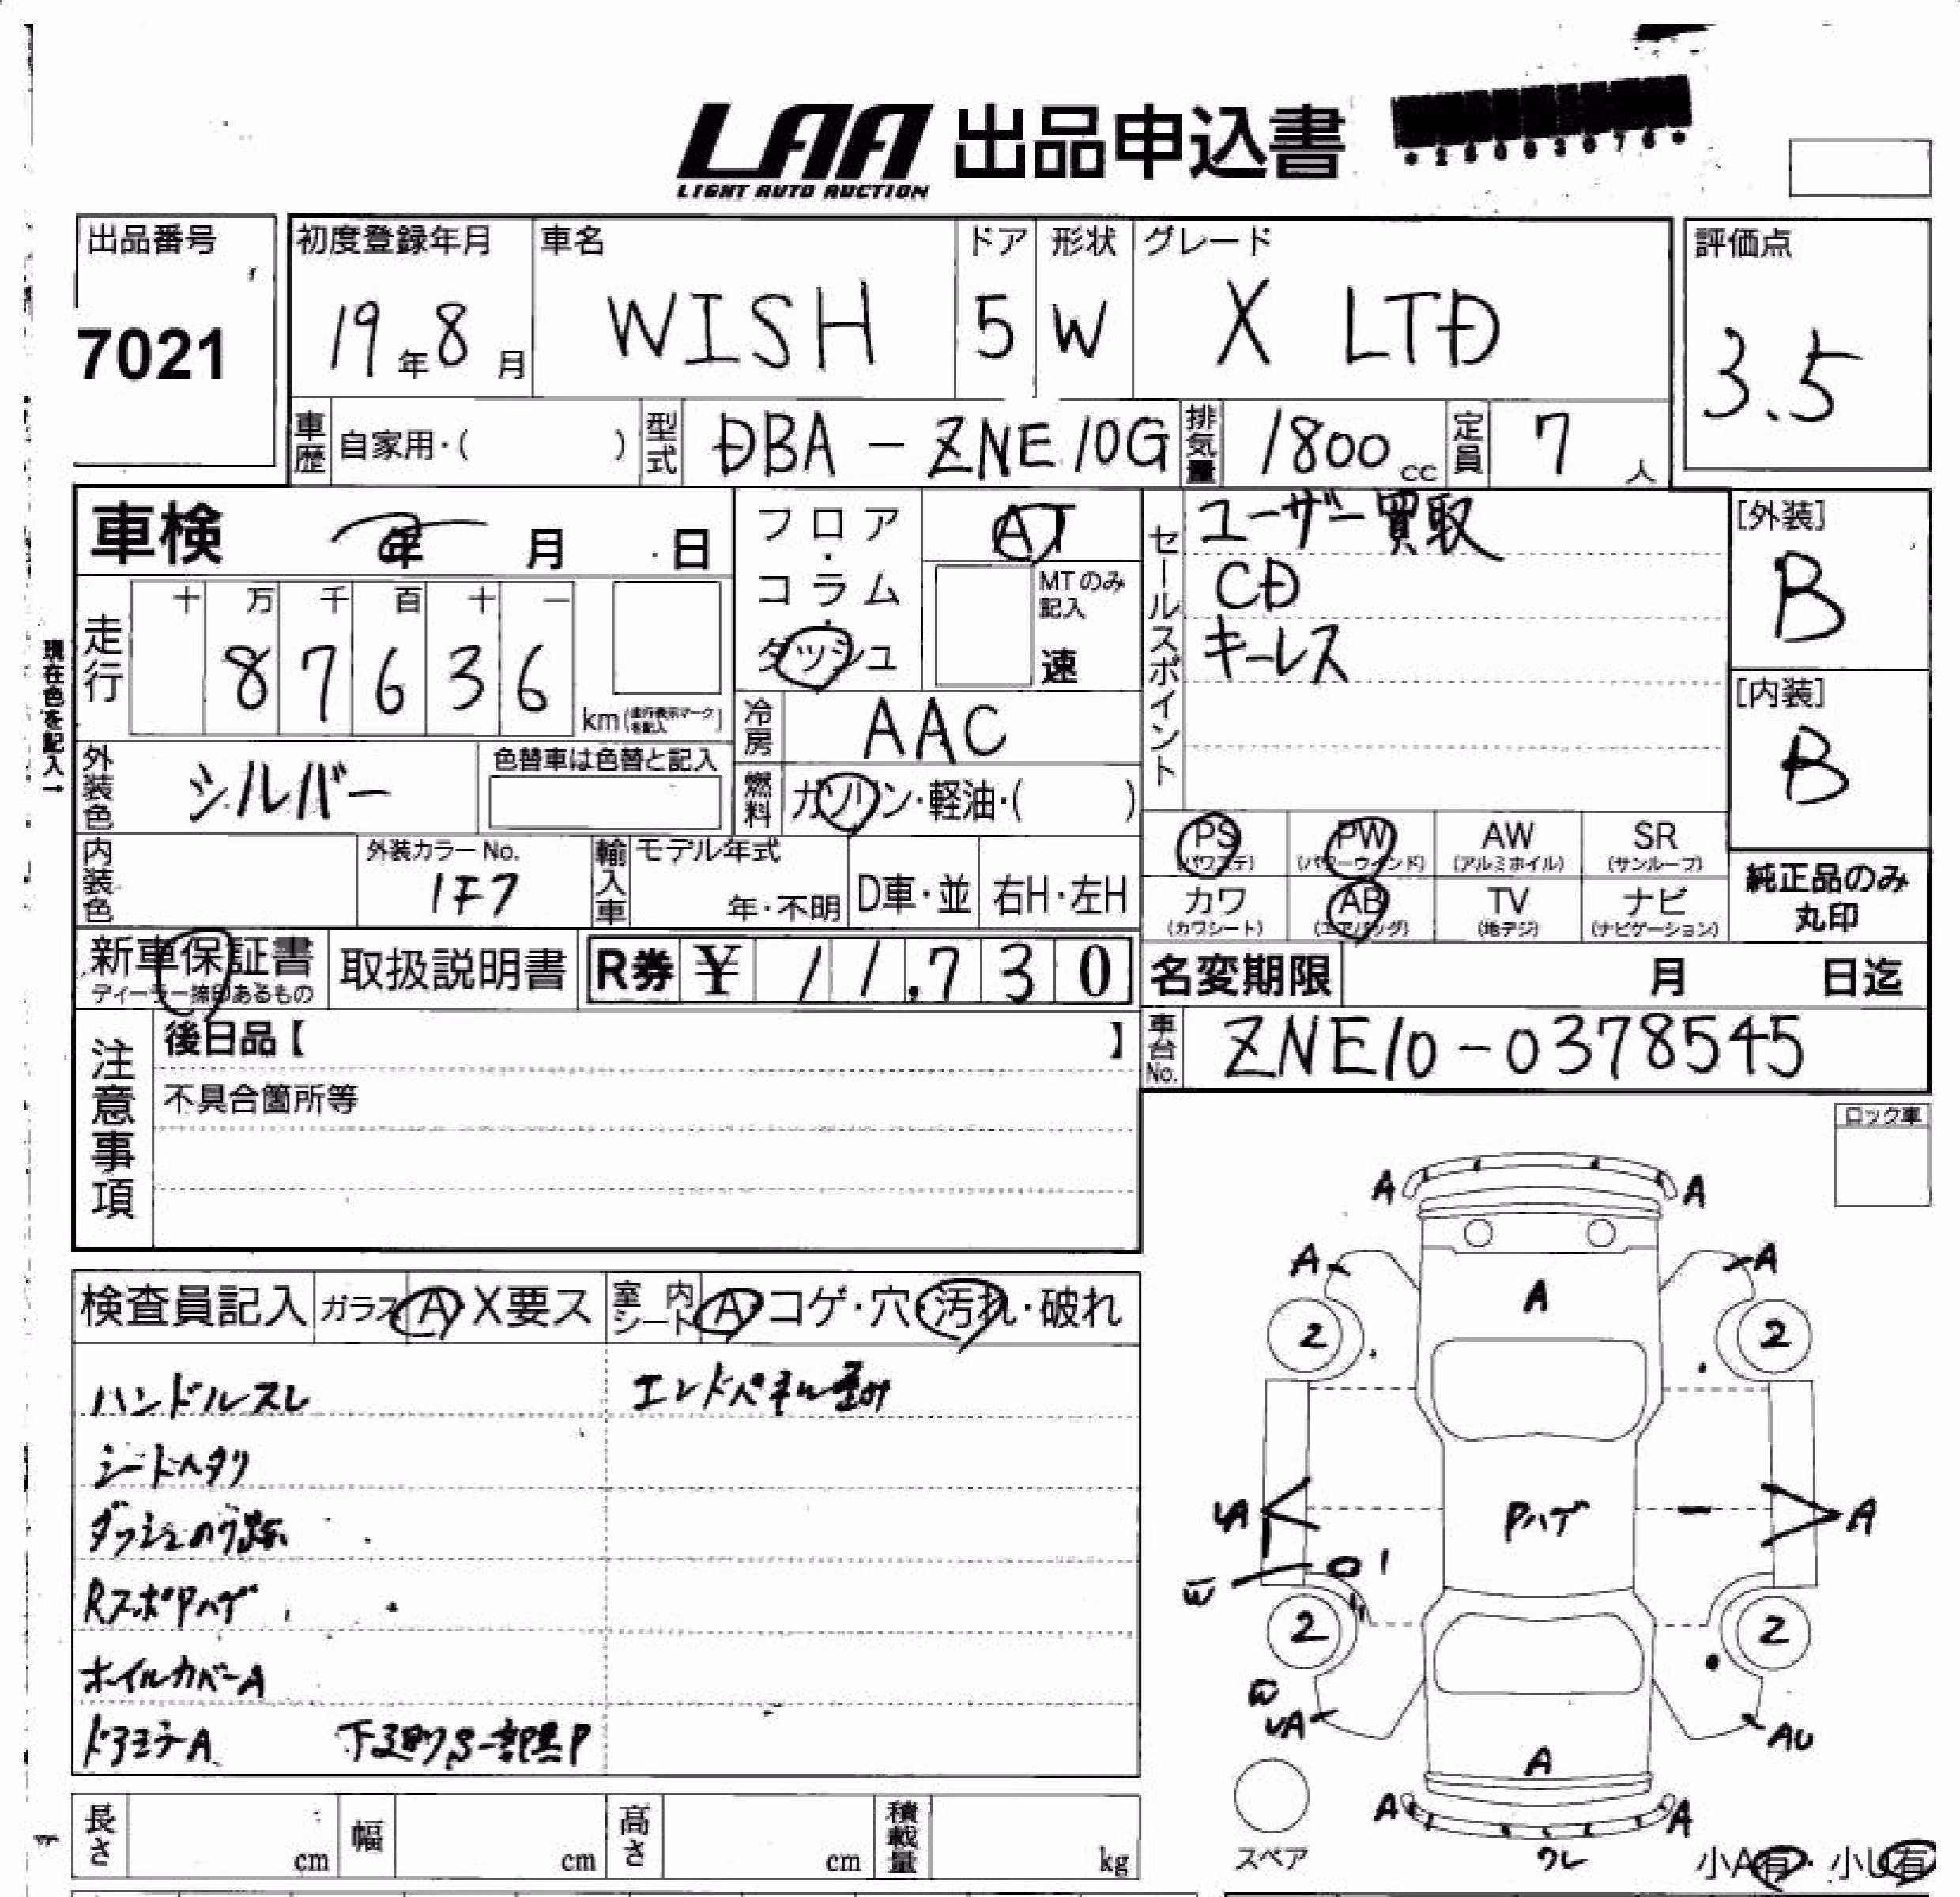 LAA 出品申込書
LIGHT AUTO AUCTION
出品番号
7021
初度登録年月 車名 ドア 形状 グレード
19年8月 WISH 5 W X LTD
評価点
3.5
車歴 自家用・( ) 型式 DBA-ZNE10G 排気量 1800cc 定員 7人
車検 年 月 日
フロア・コラム・ダッシュ
AT
MTのみ記入
速
セールスポイント
ユーザー買取
CD
キーレス
[外装]
B
[内装]
B
現在色を記入→
走行 十 万 千 百 十 一
87636 km(走行表示マークを記入)
冷房 AAC
外装色 シルバー 色替車は色替と記入
燃料 ガソリン・軽油・( )
内装色 外装カラーNo. 1F7
輸入車 モデル年式 年・不明 D車・並 右H・左H
PS (パワステ) PW (パワーウインド) AW (アルミホイル) SR (サンルーフ)
カワ (カワシート) AB (エアバッグ) TV (地デジ) ナビ (ナビゲーション)
純正品のみ丸印
新車保証書 ディーラー捺印あるもの 取扱説明書 R券 ¥ 11,730
名変期限 月 日迄
車台No. ZNE10-0378545
注意事項
後日品【 】
不具合箇所等
ロック車
検査員記入 ガラス A・X要ス 室内シート A・コゲ・穴・汚れ・破れ
ハンドルスレ エンドパネル歪み
シートヘタリ
ダッシュのり跡
RスポPハゲ
ホイルカバーA
ドアミラーA 下廻りS一部黒P
A A
A A
A
2 2
UA Pハゲ A
W 1
2 2
W
UA AU
A
A A
ワレ
スペア
小A有・小U有
長さ cm 幅 cm 高さ cm 積載量 kg